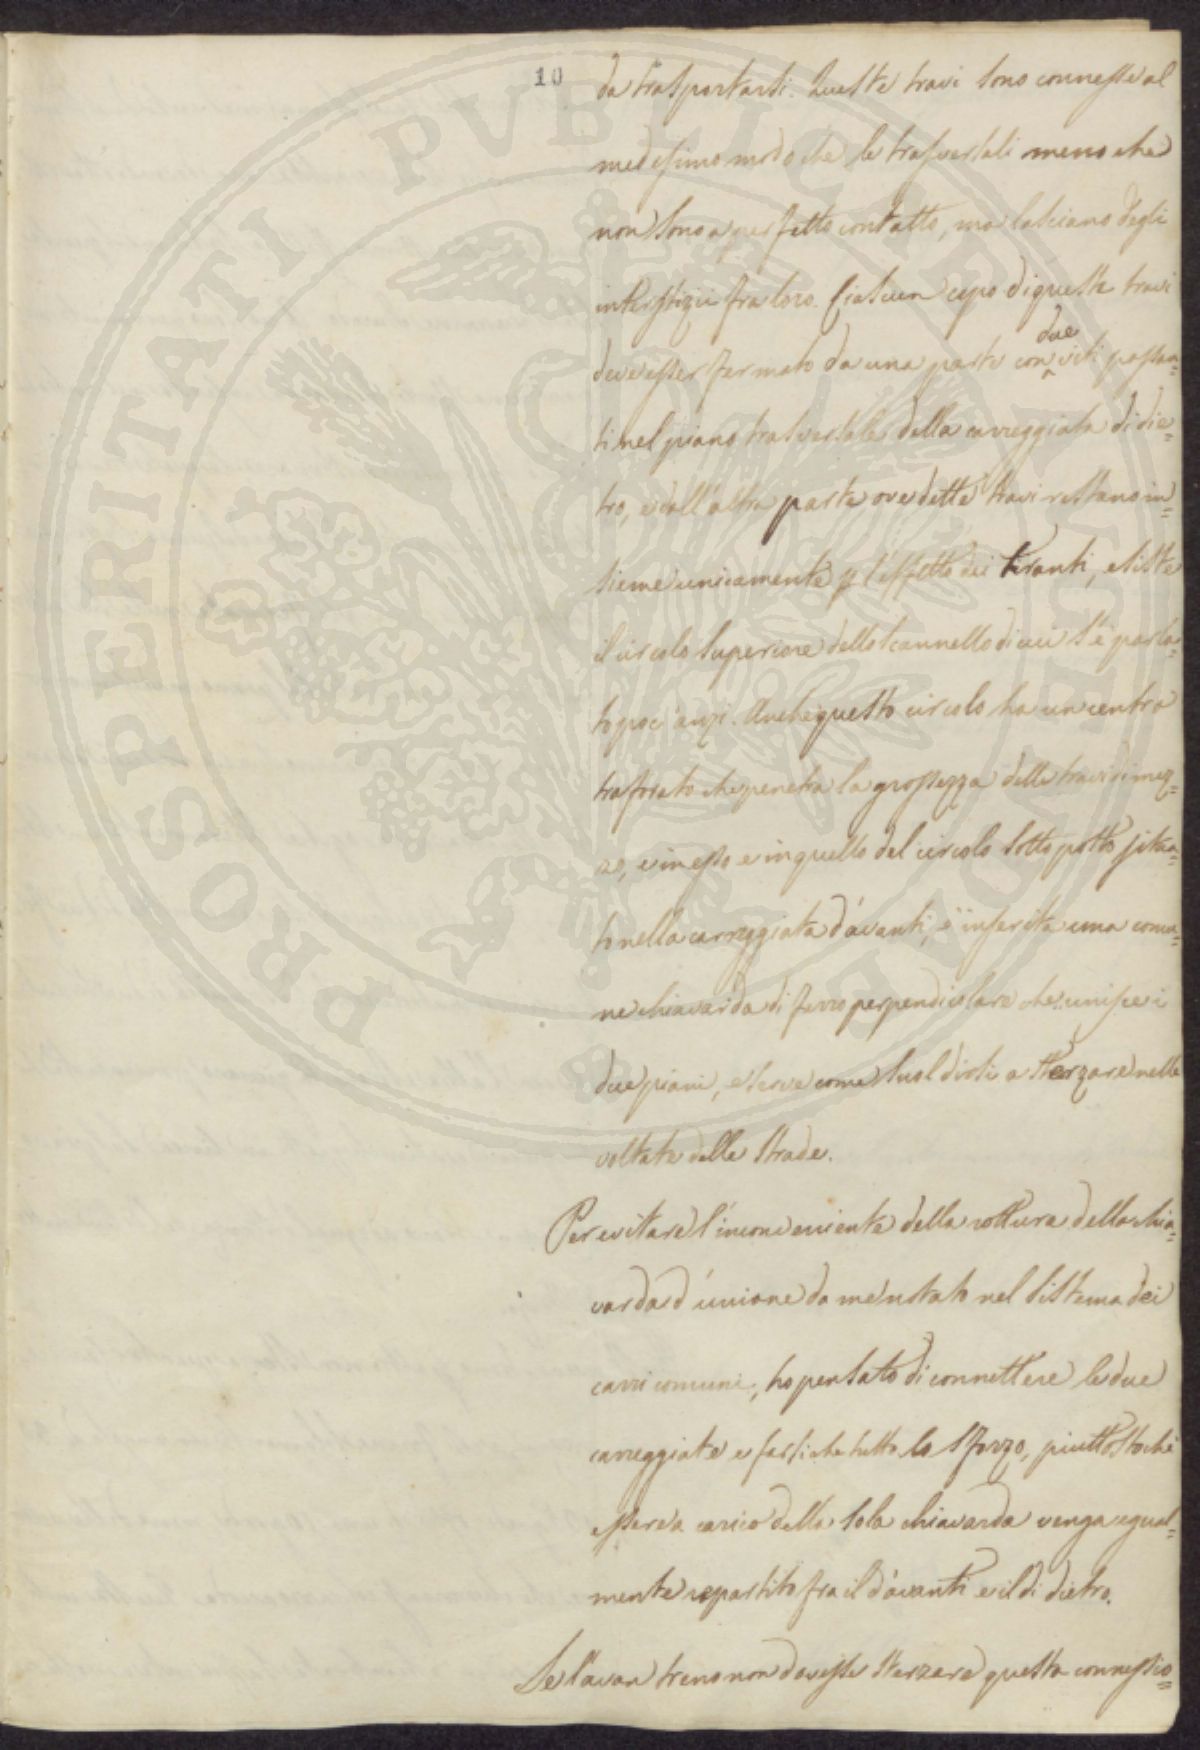 10
da trasportarsi. Queste travi sono connesse al
medesimo modo che le trasversali meno che
non sono a perfetto contatto, ma lasciano degli
interstizii fra loro. Ciascun cepo di queste travi
deve esser fermato da una parte con due viti passan=
ti nel piano trasversale della carreggiata di die=
tro, e dall'altra parte ove dette travi restano in=
sieme unicamente p l'effetto dei tiranti, esiste
il circolo superiore dello scannello di cui s'è parla=
to poc'anzi. Anche questo circolo ha un centro
traforato che penetra la grossezza delle travi di mez=
zo, e in esso e in quello del circolo sottoposto situa=
to nella carreggiata d'avanti, è inserita una comu=
ne chiavarda di ferro perpendicolare che unisce i
due piani, e serve come suol dirsi a sterzare nelle
voltate delle strade.
Per evitare l'inconveniente della rottura della chia=
varda d'unione da me notato nel sistema dei
carri comuni, ho pensato di connettere le due
carreggiate e far sì che tutto lo sforzo, piuttosto che
essere a carico della sola chiavarda venga egual=
mente repartito fra il d'avanti e il di dietro.
Se l'avan treno non dovesse sterzare questa connessio=
PROSPERITATI PUBLICAE AUGENDAE